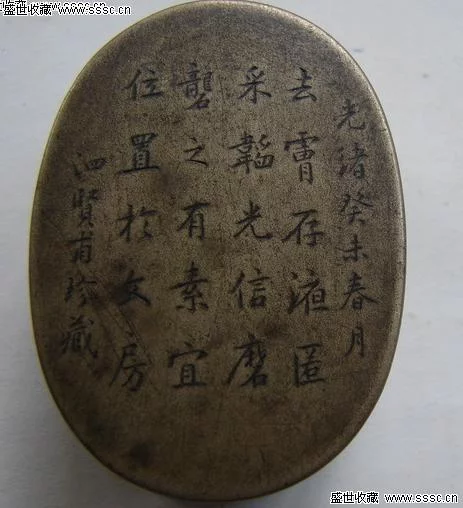 盛世收藏 www.sssc.cn
光緒癸未春月
去存液匿
采韜光信磨
礱之有素宜
位置於文房
泗賢甫珍藏
盛世收藏 www.sssc.cn